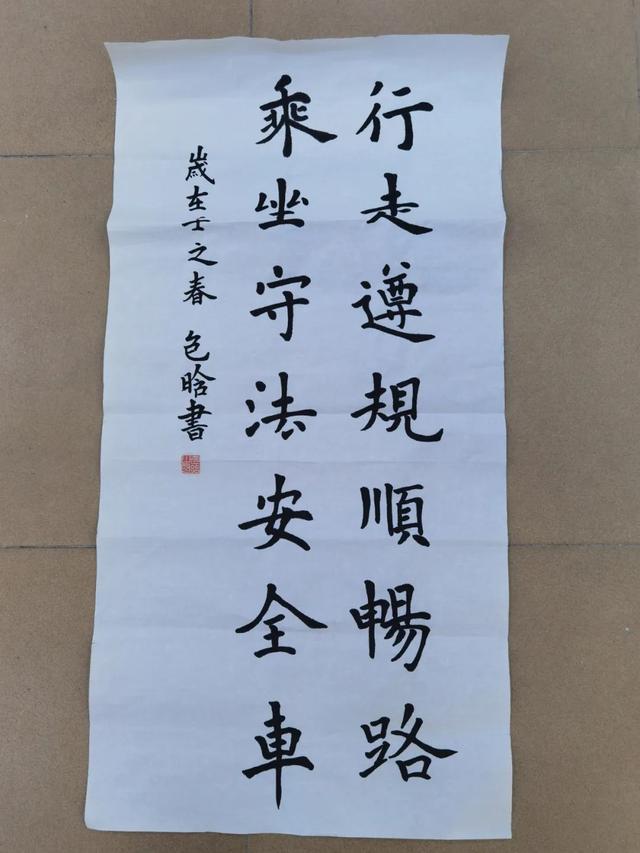 行走遵規順暢路
乘坐守法安全車
歲在壬之春 包晗書